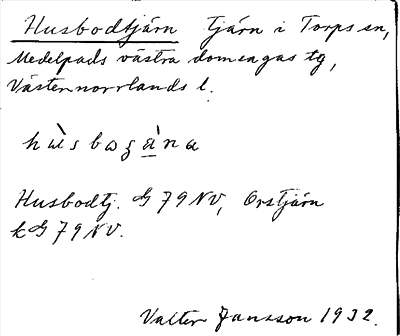 Husbodtjärn Tjärn i Torps sn,
Medelpads västra domsagas tg,
Västernorrlands l.
Husbodtj. G 79 NV, Orstjärn
kG 79 NV.
Valter Jansson 1932.